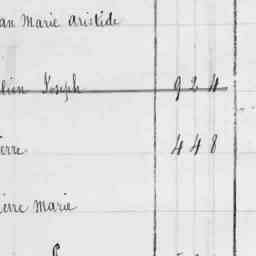 an Marie Aristide
lien Joseph 9 2 4
erre 4 4 8
ierre Marie